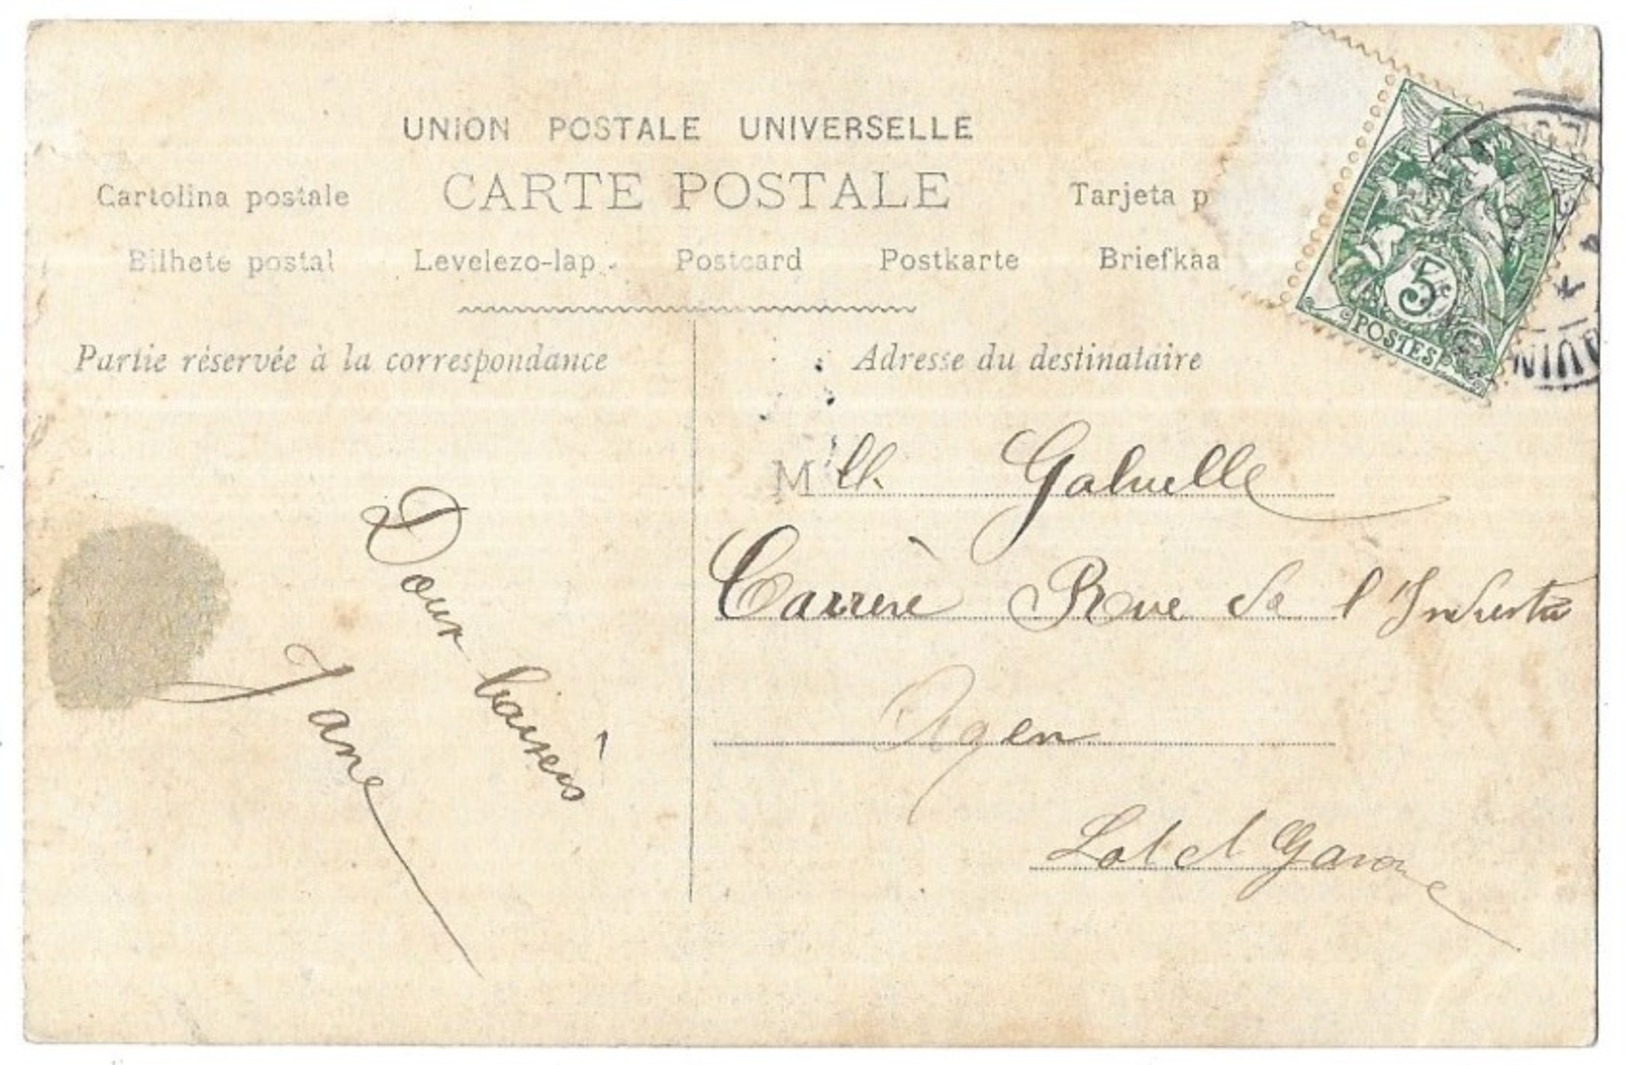 UNION POSTALE UNIVERSELLE
Cartolina postale CARTE POSTALE Tarjeta p
Bilhete postal Levelezo-lap. Postcard Postkarte Briefkaa
Partie réservée à la correspondance
Adresse du destinataire
5c
POSTES
Mlle Gabrielle
Carrère Rue de l'Industrie
Agen
Lot et Garonne
Doux baisers
Jane